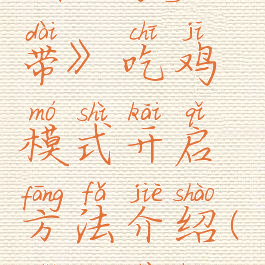 dài chī jī
带》吃鸡
mó shì kāi qǐ
模式开启
fāng fǎ jiè shào
方法介绍(